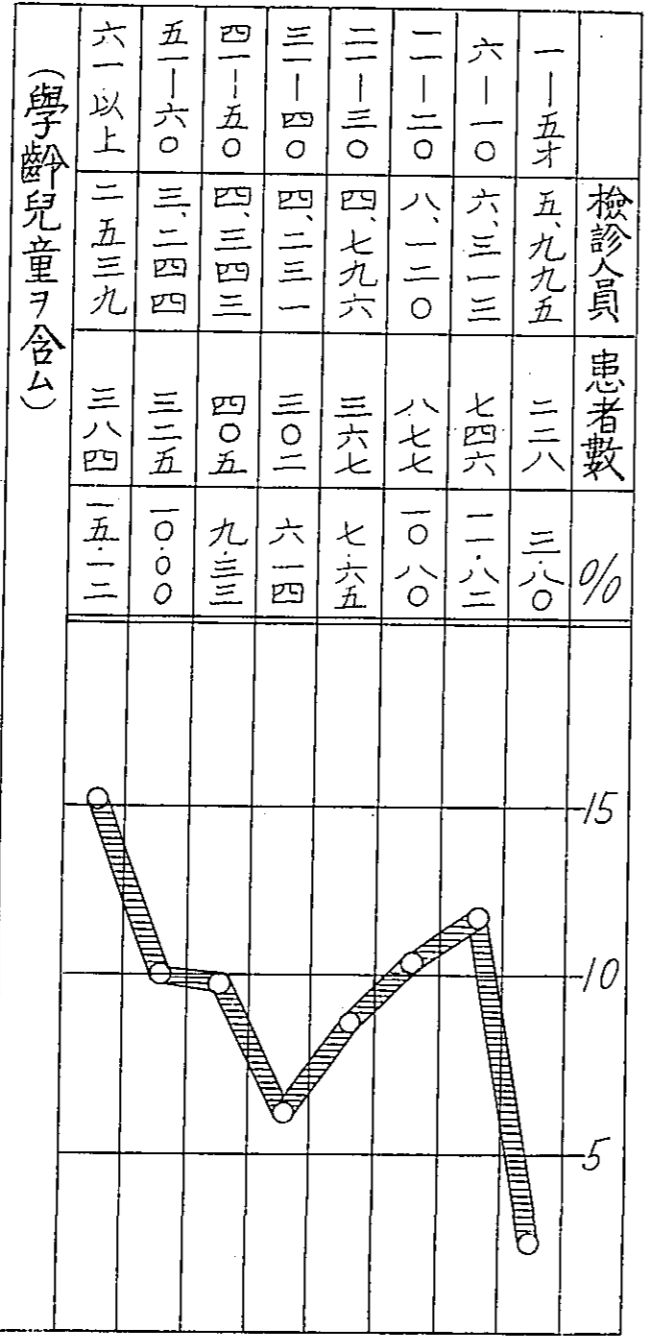 檢診人員 患者數 %
一―五才 五、九九五 二二八 三・八〇
六―一〇 六、三一三 七四六 一一・八二
一一―二〇 八、一二〇 八七七 一〇八〇
二一―三〇 四、七九六 三六七 七・六五
三一―四〇 四、二三一 三〇二 六一四
四一―五〇 四、三四三 四〇五 九・三三
五一―六〇 三、二四四 三二五 一〇・〇〇
六一以上 二五三九 三八四 一五・一二
(學齡兒童ヲ含ム)
15
10
5